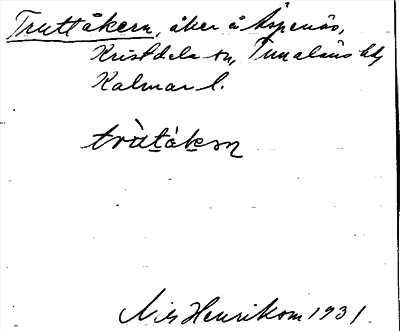 Truttåkern, åker å Aspenäs,
Kristdala sn, Tunaläns hd,
Kalmar l.
trùtåkeɳ
Nils Henrikson 1931.